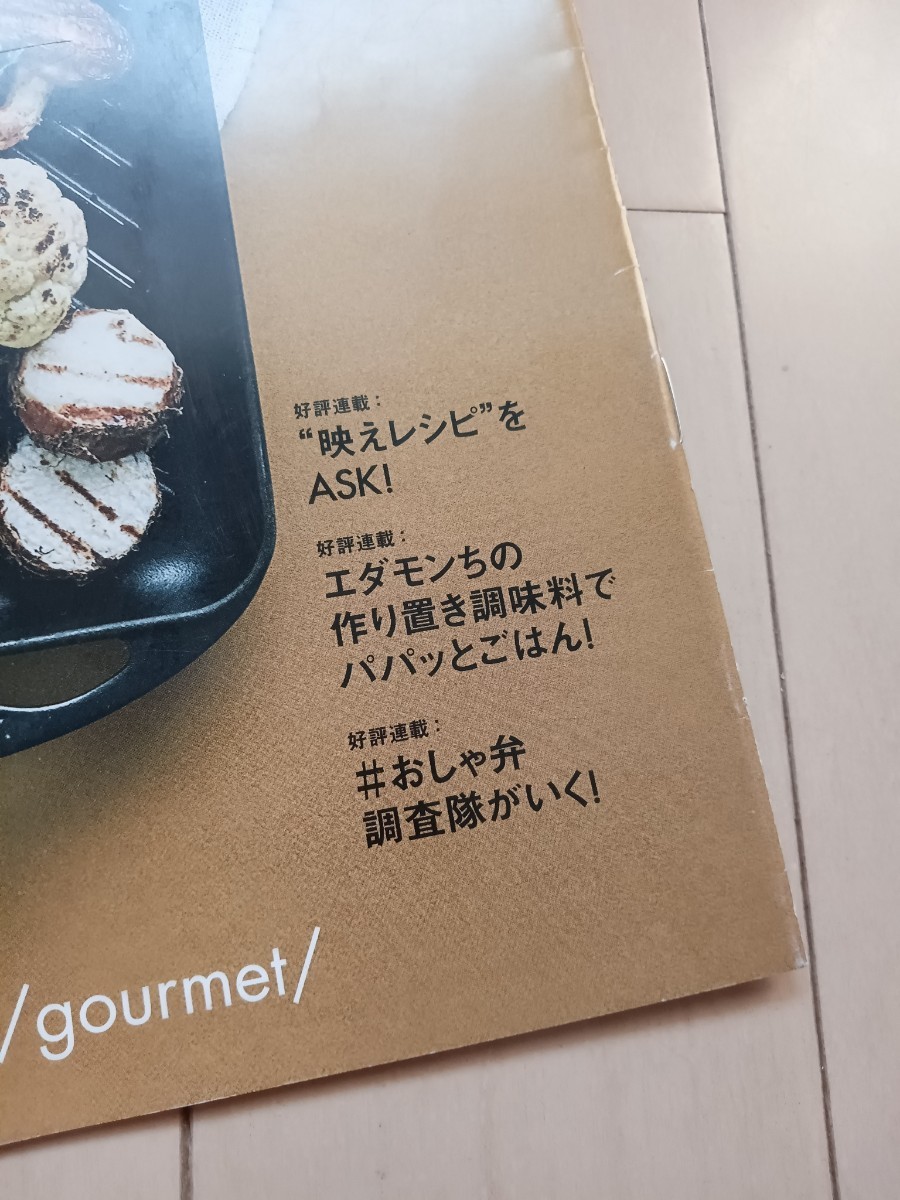 好評連載：
“映えレシピ”を
ASK!
好評連載：
エダモンちの
作り置き調味料で
パパッとごはん!
好評連載：
#おしゃ弁
調査隊がいく!
/gourmet/